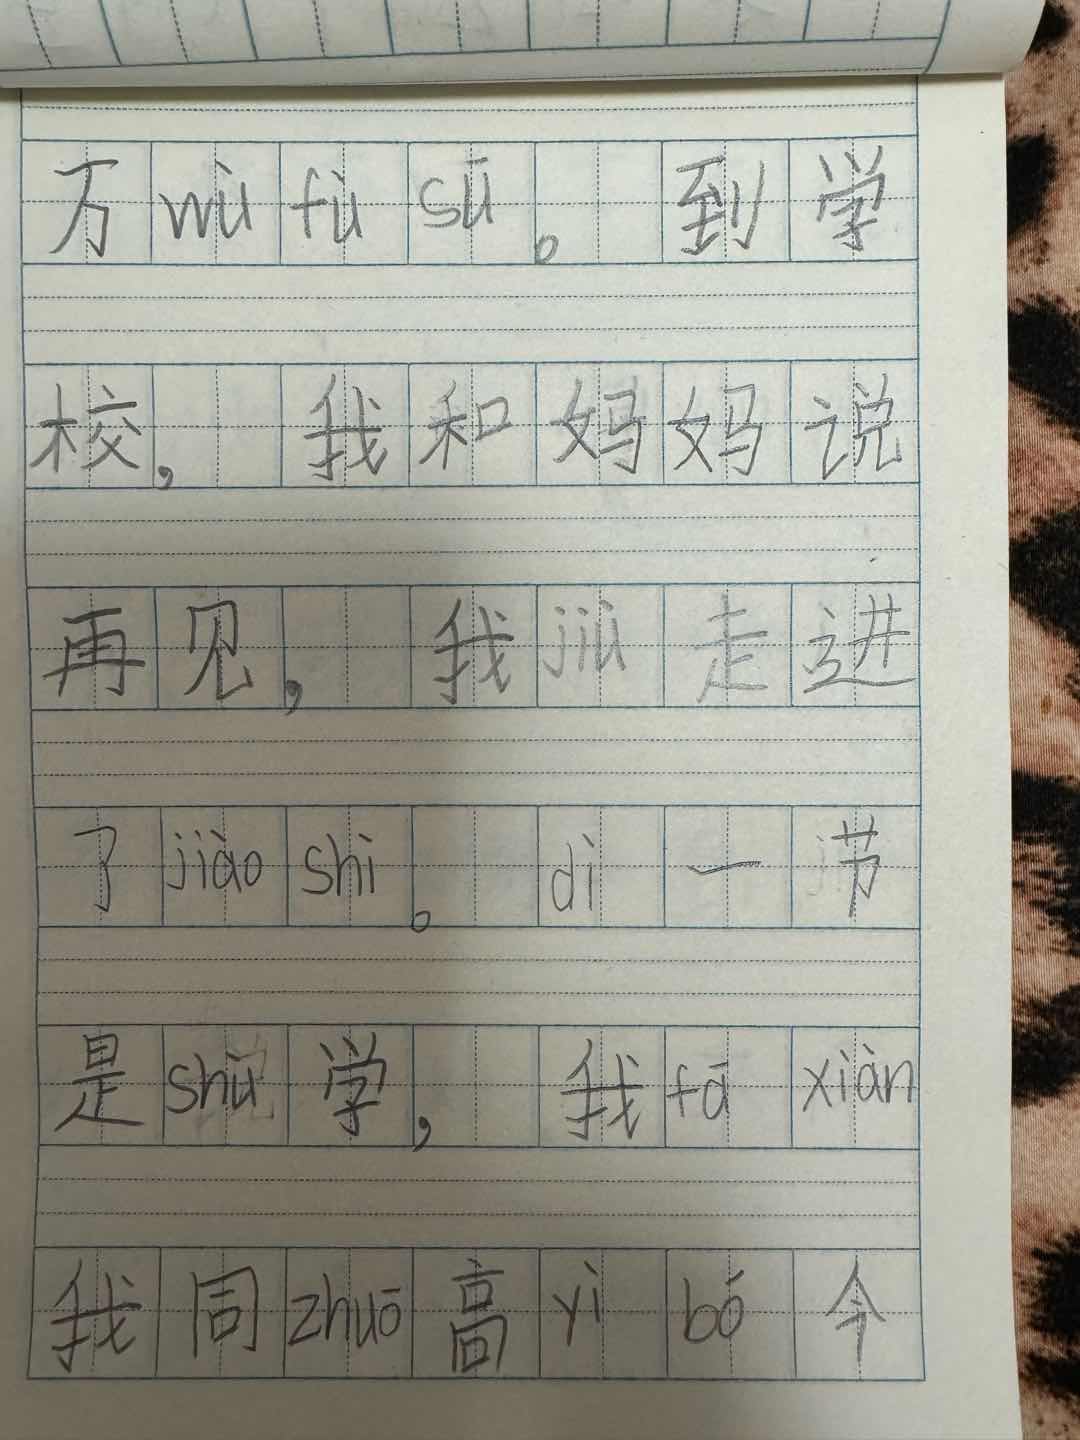 万wù fù sū。到学
校，我和妈妈说
再见，我jiù走进
了jiào shì。dì一节
是shù学，我fā xiàn
我同zhuō高yì bó今